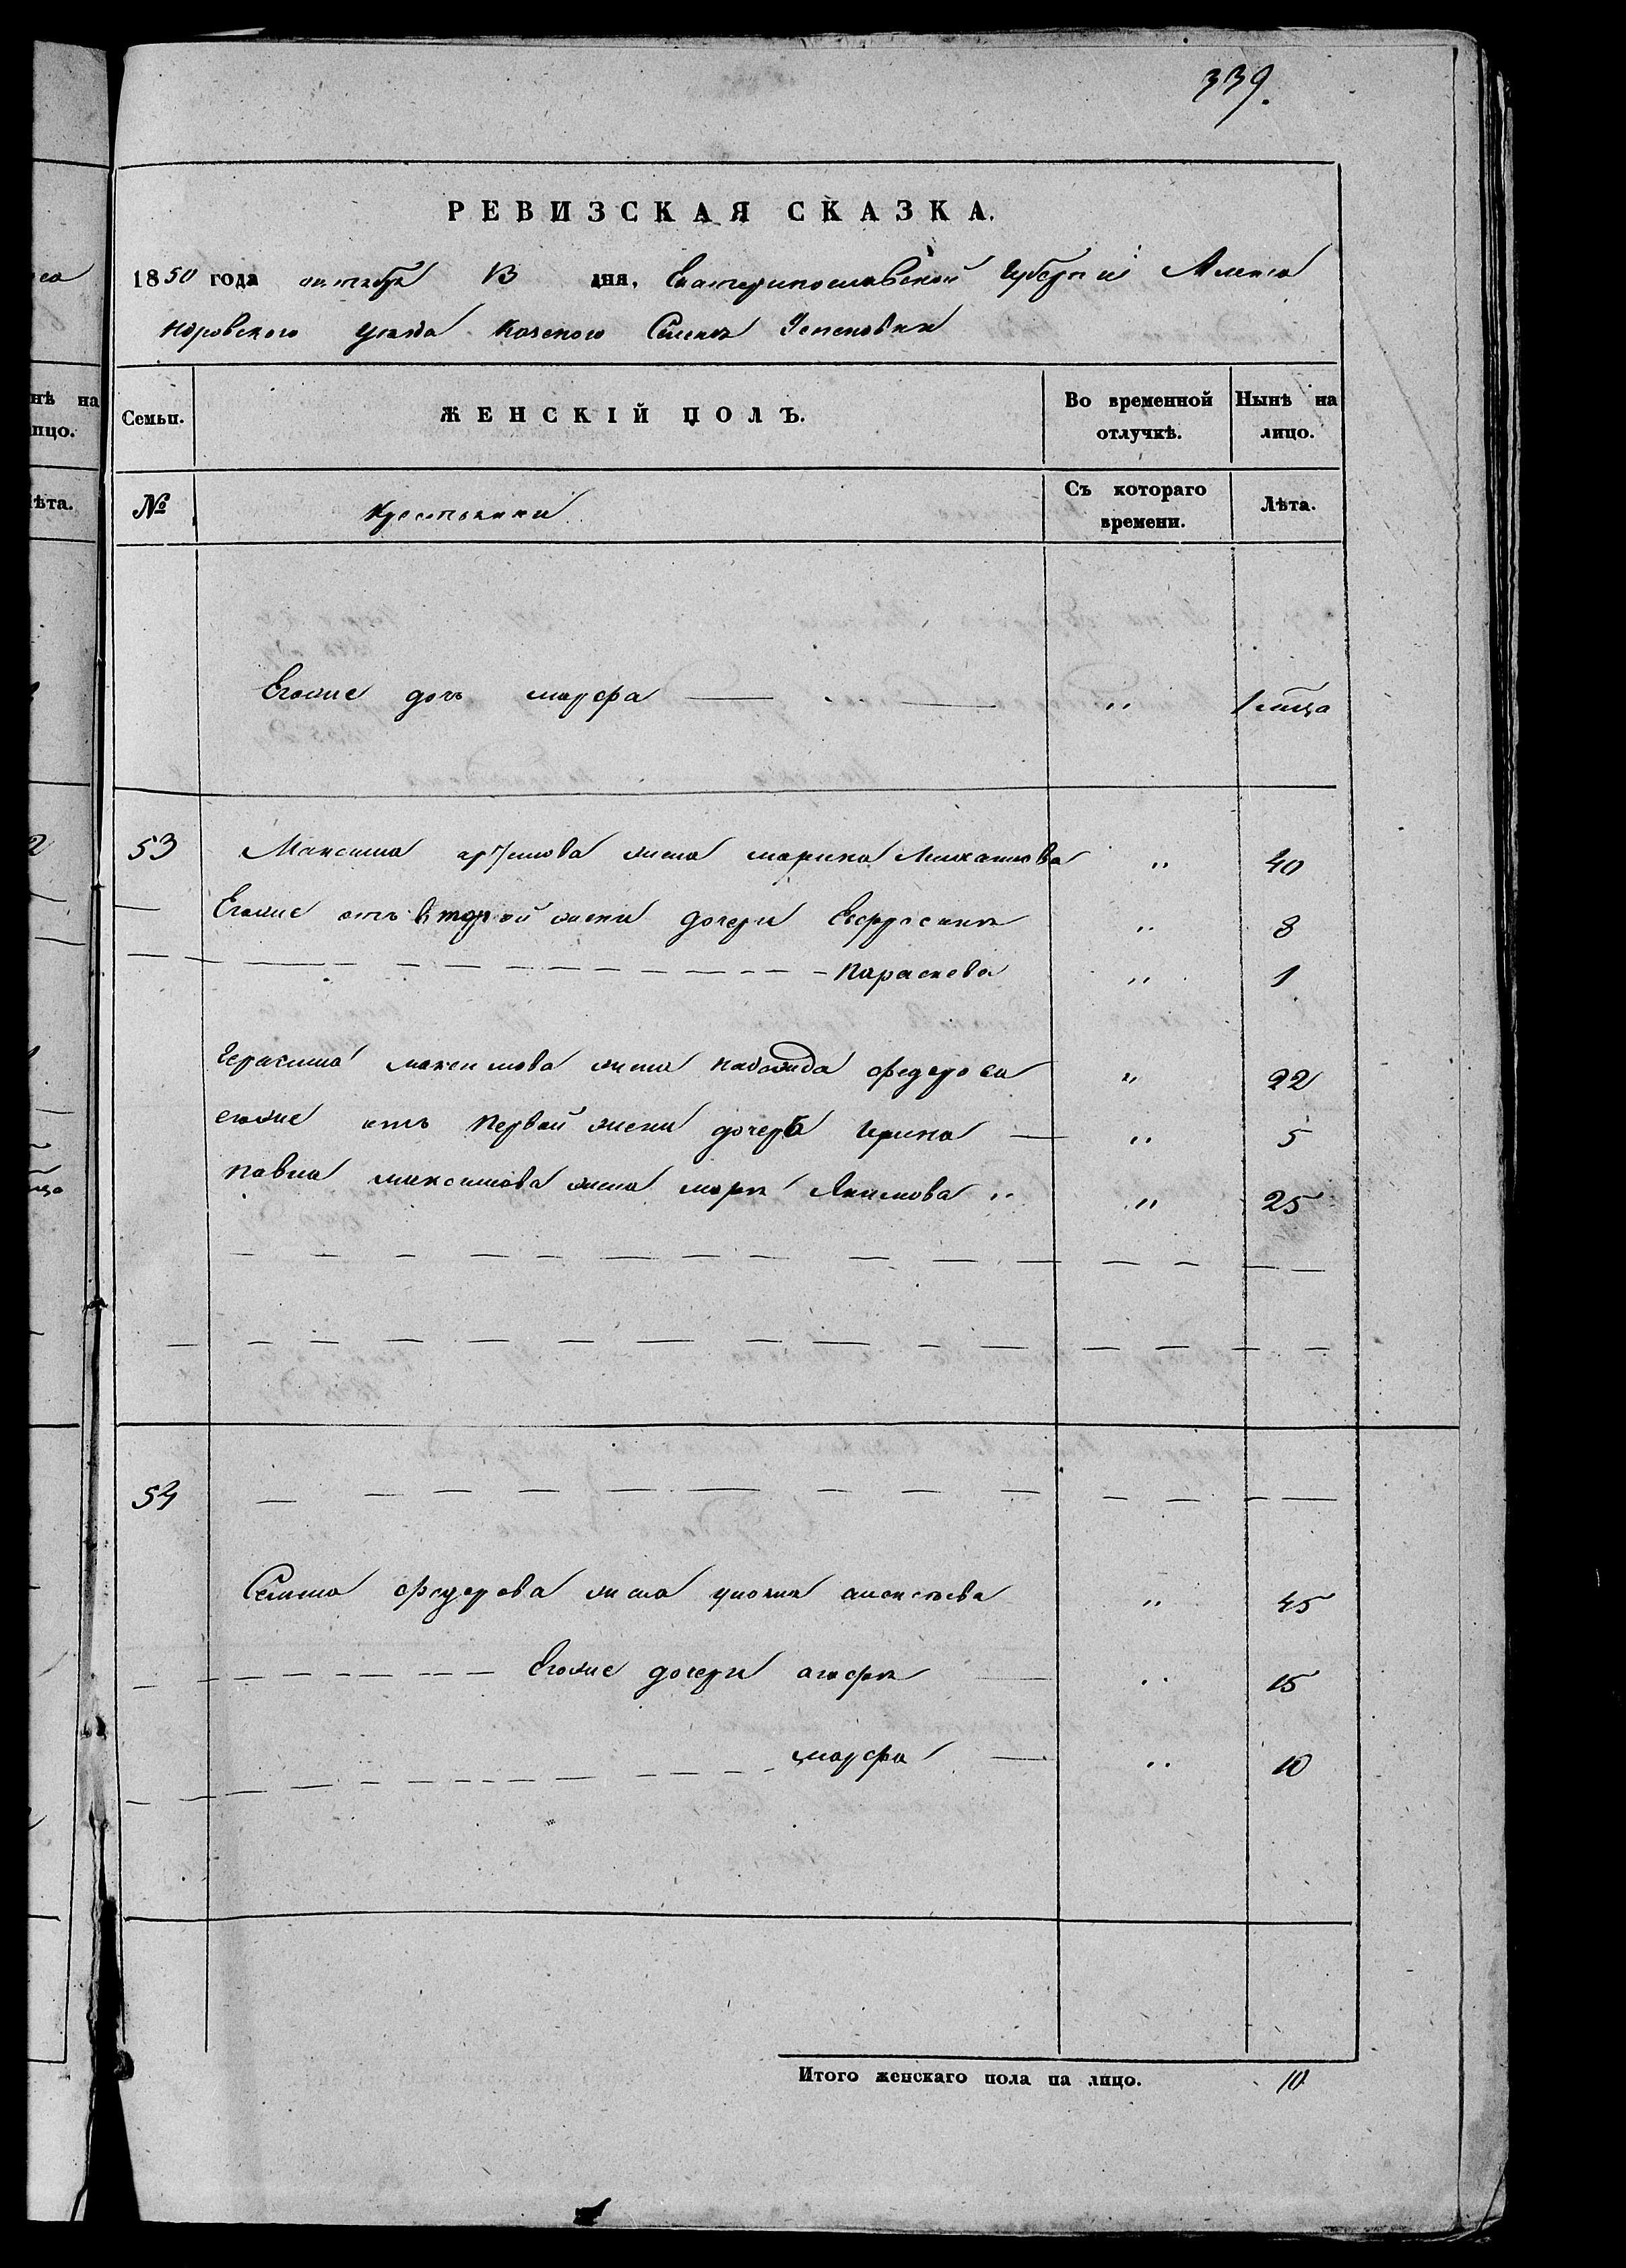 339.
РЕВИЗСКАЯ СКАЗКА.
1850 года октября 13 дня, Екатеринославской Губернии Алекса
ндровского уезда Казеного Селенія
Семьи. ЖЕНСКІЙ ПОЛЪ. Во временной отлучкѣ. Нынѣ на лицо.
№ Крестьянки Съ котораго времени. Лѣта.
Егоже дочь марфа — " — " 1 мца
53 Максима артемова жена марина Михаилова " 40
Егоже отъ второй жены дочери Евфросиня " 8
Параскева " 1
Герасима максимова жена надежда федерова " 22
егоже отъ первой жены дочерь Ирина — " 5
павла максимова жена марія Якимова " " 25
54
Семена федерова жена алексеева " 45
Егоже дочери агафия — " 15
марфа — " 10
Итого женскаго пола на лицо. 10
нѣ на
лицо.
ѣта.